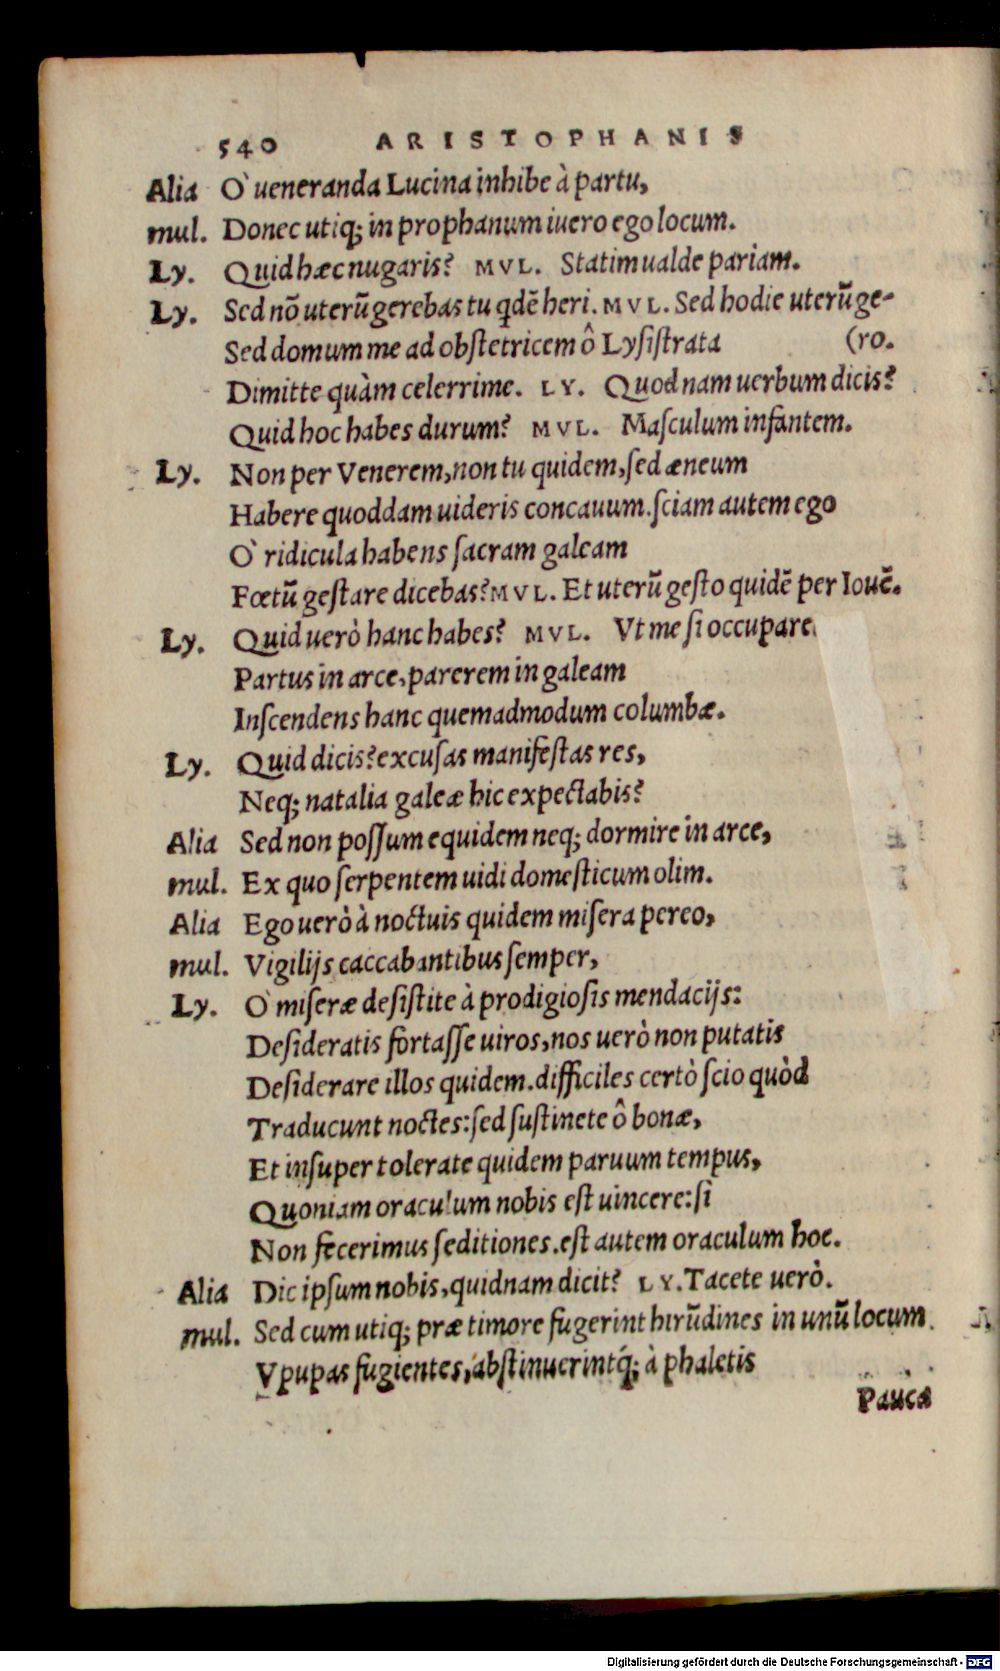 540 ARISTOPHANIS
Alia O' ueneranda Lucina inhibe à partu,
mul. Donec utiq; in prophanum iuero ego locum.
Ly. Quid hæc nugaris? MVL. Statim ualde pariam.
Ly. Sed nõ uterũ gerebas tu qdẽ heri. MVL. Sed hodie uterũ ge-
Sed domum me ad obstetricem ô Lysistrata (ro.
Dimitte quàm celerrime. LY. Quod nam uerbum dicis?
Quid hoc habes durum? MVL. Masculum infantem.
Ly. Non per Venerem, non tu quidem, sed æneum
Habere quoddam uideris concauum. sciam autem ego
O' ridicula habens sacram galeam
Fœtũ gestare dicebas? MVL. Et uterũ gesto quidẽ per Iouẽ.
Ly. Quid uerò hanc habes? MVL. Vt me si occupare
Partus in arce, parerem in galeam
Inscendens hanc quemadmodum columbæ.
Ly. Quid dicis? excusas manifestas res,
Neq; natalia galeæ hic expectabis?
Alia Sed non possum equidem neq; dormire in arce,
mul. Ex quo serpentem uidi domesticum olim.
Alia Ego uerò à noctuis quidem misera pereo,
mul. Vigilijs caccabantibus semper,
Ly. O' miseræ desistite à prodigiosis mendacijs:
Desideratis fortasse uiros, nos uerò non putatis
Desiderare illos quidem. difficiles certò scio quòd
Traducunt noctes: sed sustinete ô bonæ,
Et insuper tolerate quidem paruum tempus,
Quoniam oraculum nobis est uincere: si
Non fecerimus seditiones. est autem oraculum hoc.
Alia Dic ipsum nobis, quidnam dicit? LY. Tacete uerò.
mul. Sed cum utiq; præ timore fugerint hirũdines in unũ locum.
Vpupas fugientes, abstinuerintq́; à phaletis
Pauca
Digitalisierung gefördert durch die Deutsche Forschungsgemeinschaft - DFG